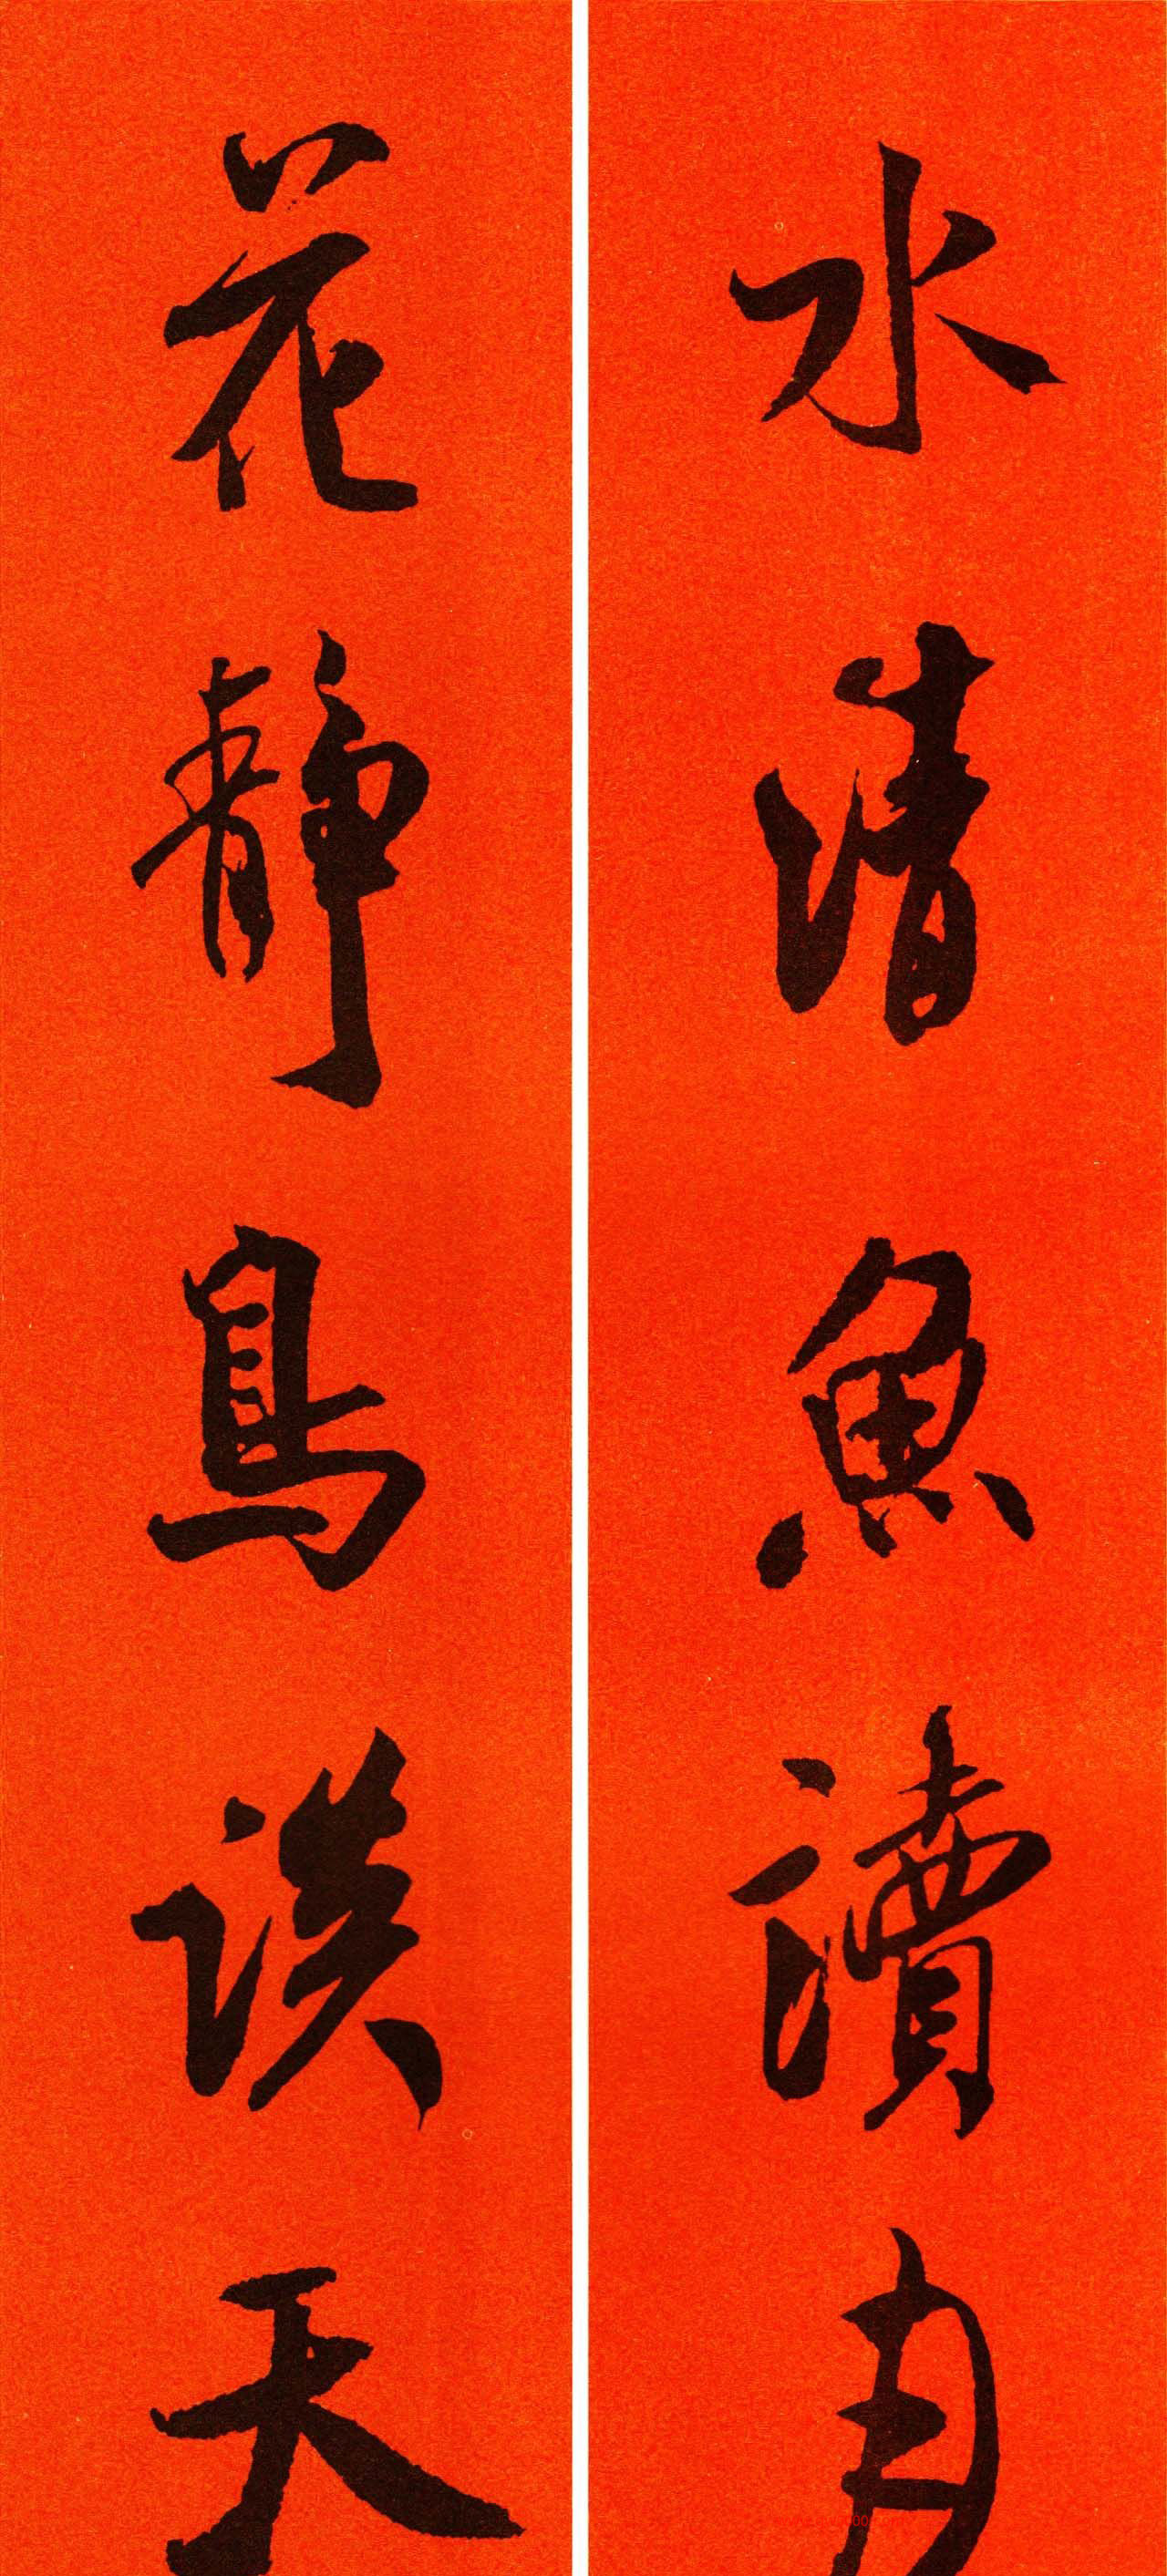 水清魚讀月
花静鳥談天